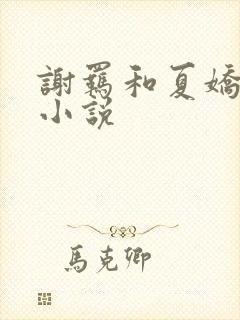 謝羈和夏嬌
小說
馬克卿